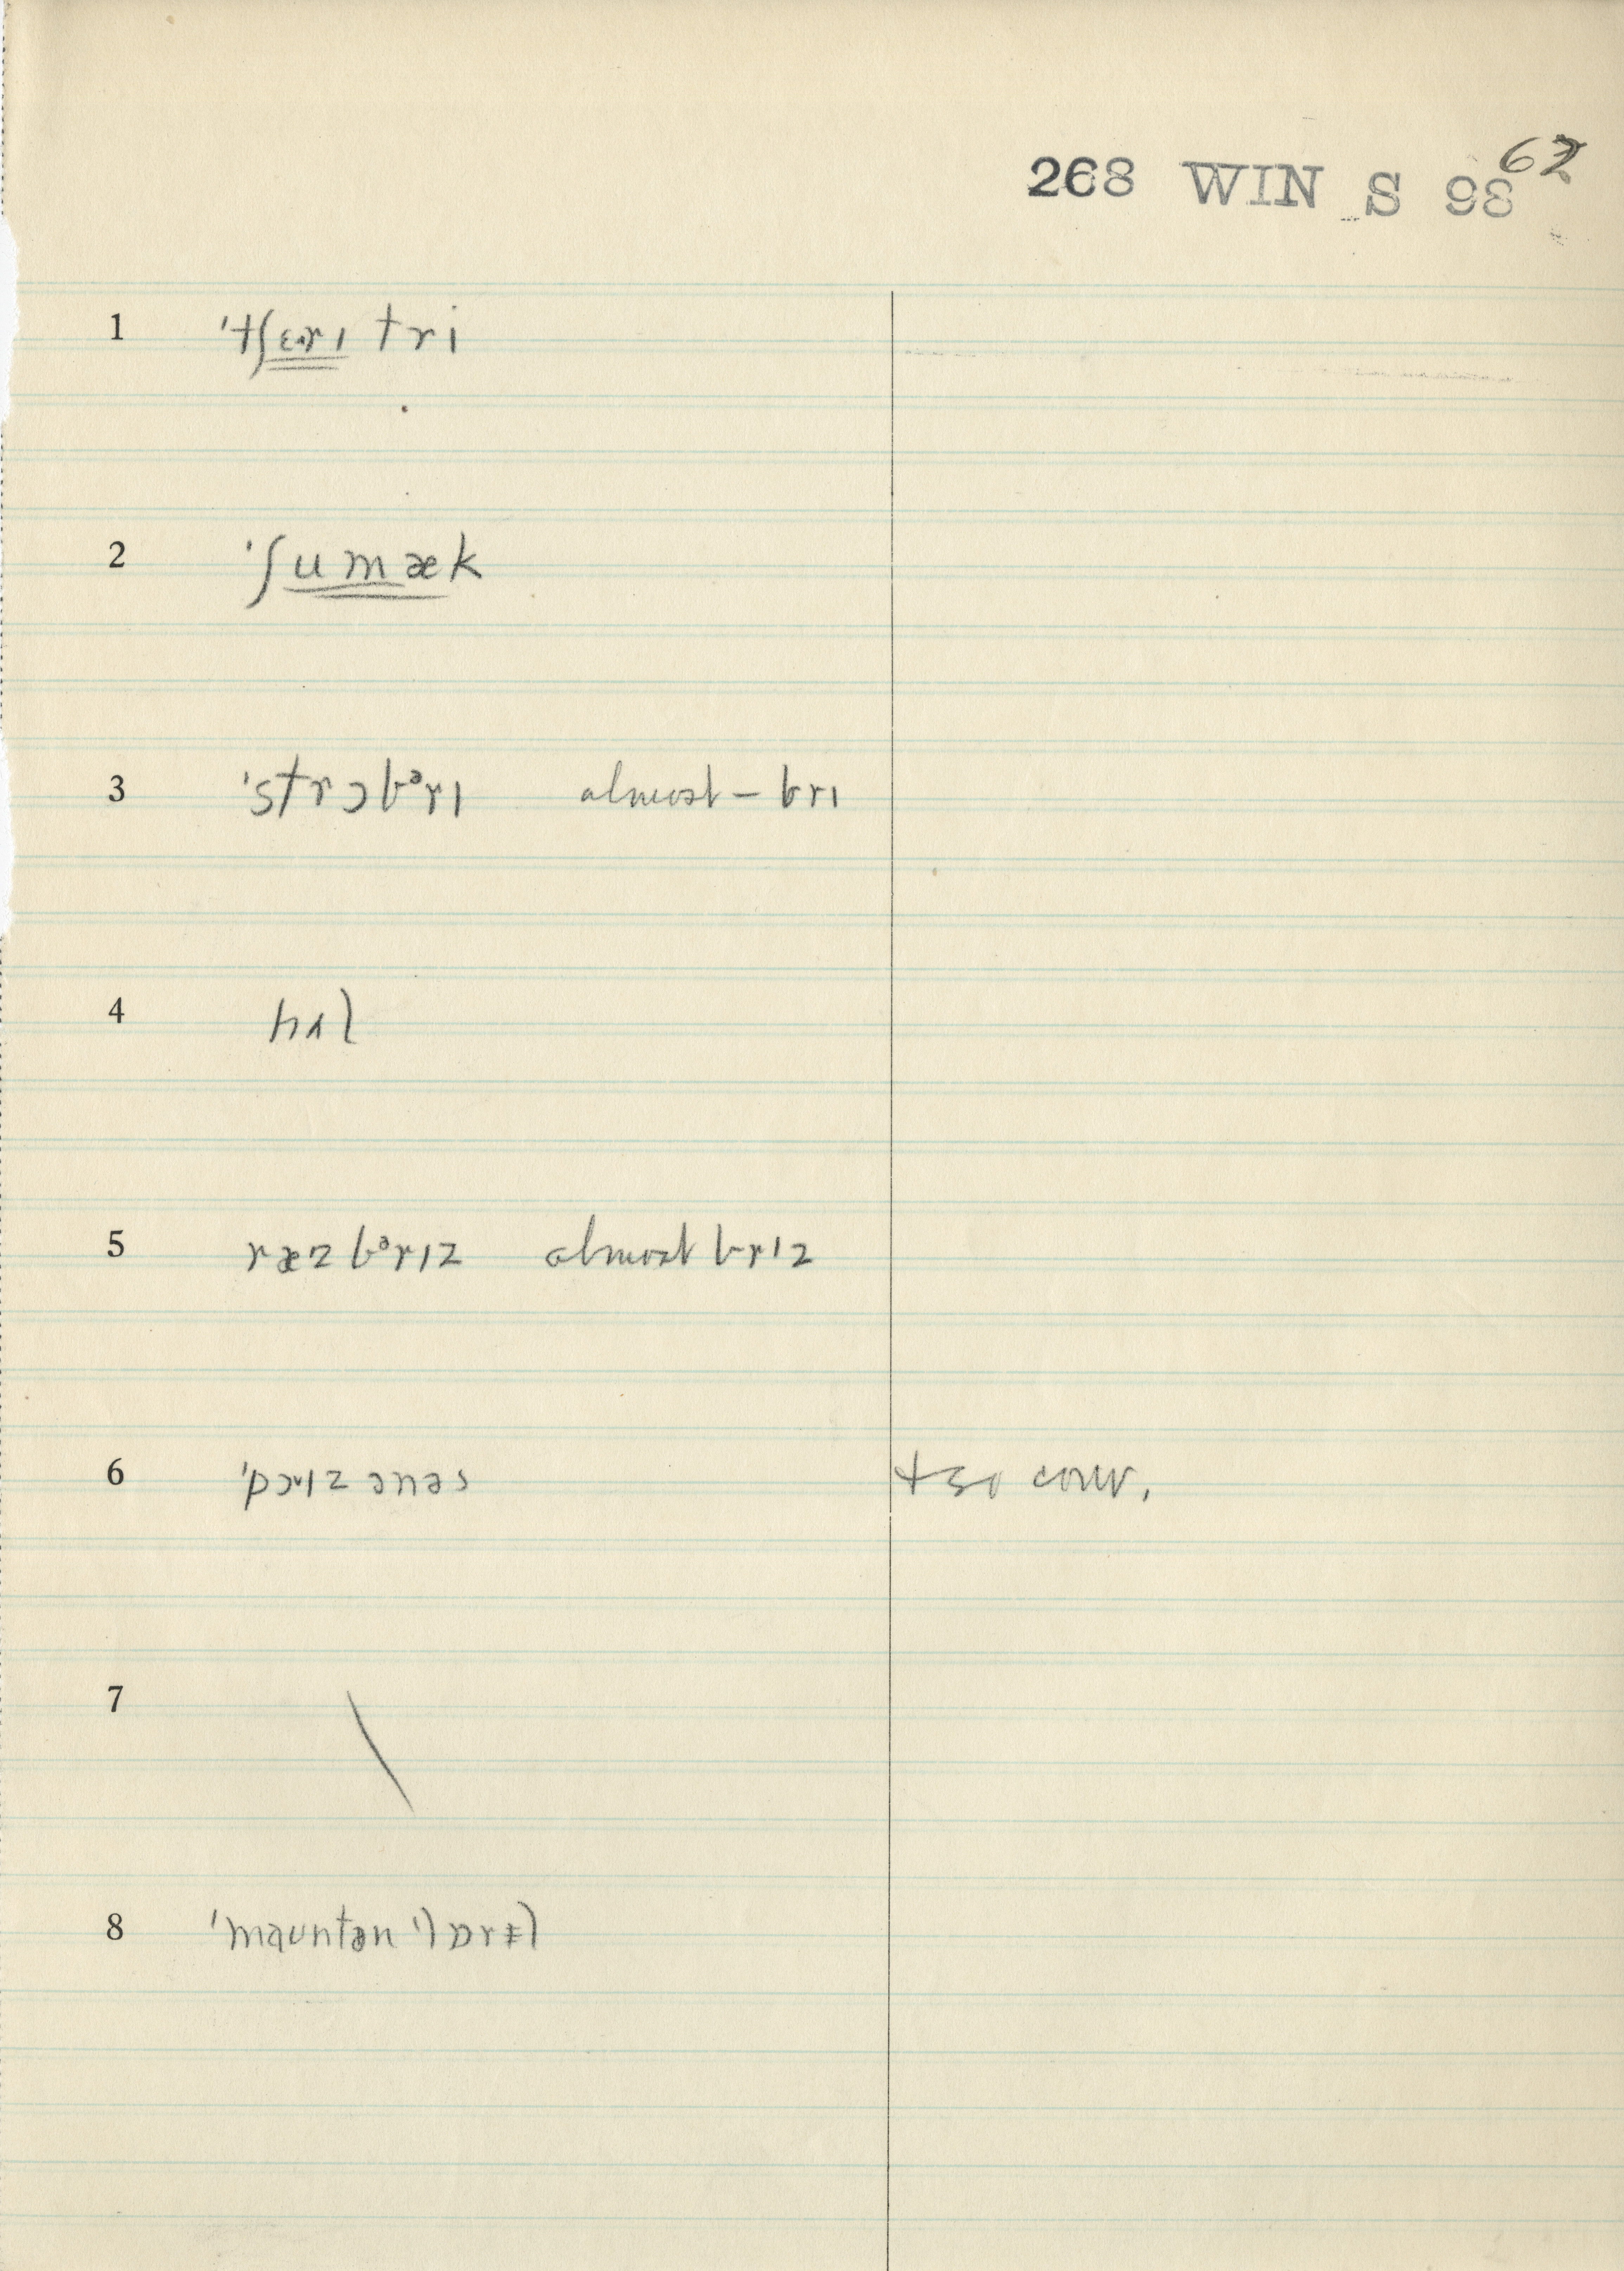 268 WIN S 98 62
1 ˈtʃɛɚrɪ tri
2 ˈʃumæk
3 ˈstrɔbᵊrɪ almost – brɪ
4 hʌl
5 ræzbᵊrɪz almost brɪz
6 ˈpɔɪzənəs conv.
7 \
8 ˈmaʊntən ˈlɒrəl